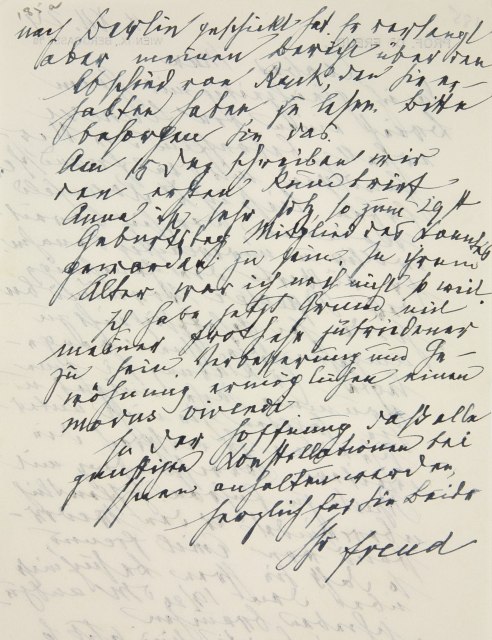 nach Berlin geschickt hat. Er verlangt
aber meinen Bericht über den
Abschied von Rank, den Sie er-
halten haben, zu lesen. Bitte
besorgen Sie das.
Am 15 Dez schreiben wir
den ersten Rundbrief.
Anna ist sehr stolz so zum 29st
Geburtstag Mitglied des
geworden zu sein. In ihrem
Alter war ich noch nicht so weit.
Ich habe jetzt Grund mit
meiner Prothese zufriedener
zu sein. Verbesserung und Ge-
wöhnung ermöglichen einen
modus vivendi
In der Hoffnung daß alle
günstigen Konstellationen bei
Ihnen anhalten werden,
herzlich für Sie Beide
Ihr Freud